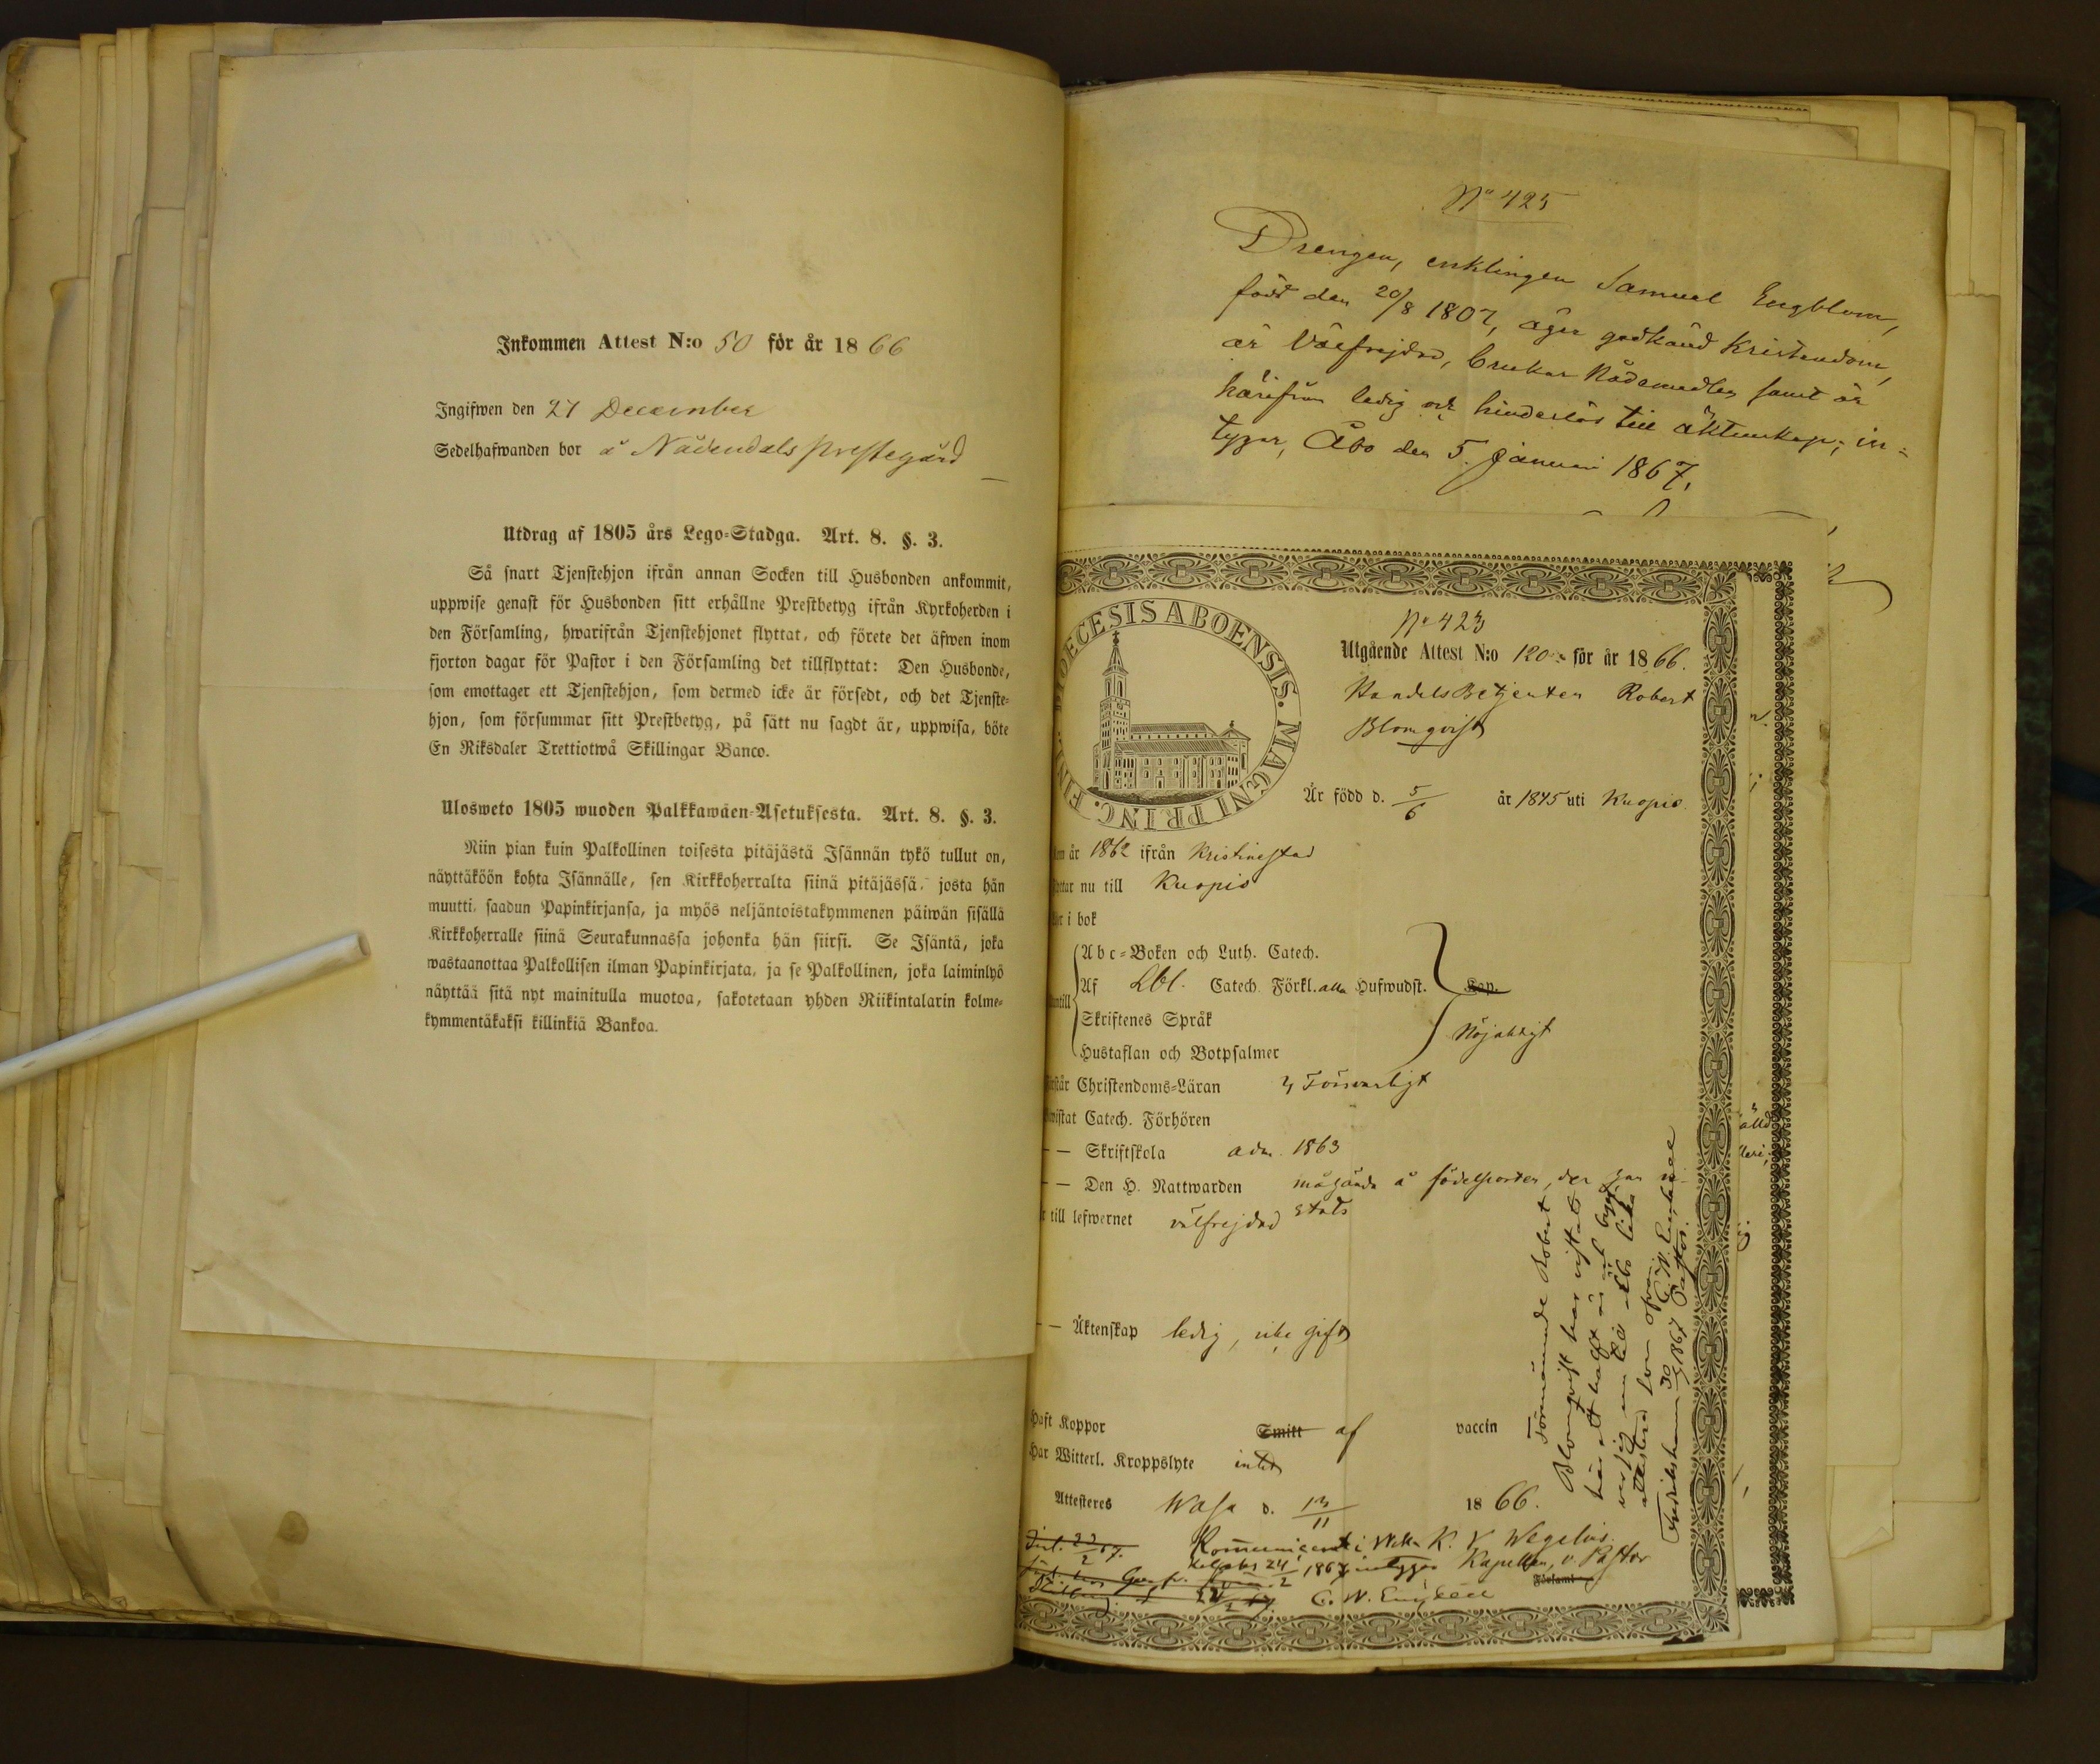 Inkommen Attest N:o 50 för år 1866
Ingifwen den 27 December
Sedelhafwanden bor å Nådendals prestegård
Utdrag af 1805 års Lego-Stadga. Art. 8. §. 3.
Så snart Tjenstehjon ifrån annan Socken till Husbonden ankommit,
uppwise genast för Husbonden sitt erhållne Prestbetyg ifrån Kyrkoherden i
den Församling, hwarifrån Tjenstehjonet flyttat, och förete det äfwen inom
fjorton dagar för Pastor i den Församling det tillflyttat: Den Husbonde,
som emottager ett Tjenstehjon, som dermed icke är försedt, och det Tjenste-
hjon, som försummar sitt Prestbetyg, på sätt nu sagdt är, uppwisa, böte
En Riksdaler Trettiotwå Skillingar Banco.
Ulosweto 1805 wuoden Palkkawäen-Asetuksesta. Art. 8. §. 3.
Niin pian kuin Palkollinen toisesta pitäjästä Isännän tykö tullut on,
näyttäköön kohta Isännälle, sen Kirkkoherralta siinä pitäjässä, josta hän
muutti, saadun Papinkirjansa, ja myös neljäntoistakymmenen päiwän sisällä
Kirkkoherralle siinä Seurakunnassa johonka hän siirsi. Se Isäntä, joka
wastaanottaa Palkollisen ilman Papinkirjata, ja se Palkollinen, joka laiminlyö
näyttää sitä nyt mainitulla muotoa, sakotetaan yhden Riikintalarin kolme-
kymmentäkaksi killinkiä Bankoa.
No 425
Drengen, enklingen Samuel Engblom,
född den 20/8 1807, äger godkänd Kristendom,
är Välfrejdad, brukar Nådemedlen samt är
härifrån ledig och hinderlös till äktenskap; in-
tygar, Åbo den 5 Januari 1867.
DIOECESIS ABOENSIS. MAGNI PRINC. FINL.
No 423
Utgående Attest N:o 120 för år 1866.
HandelsBetjenten Robert
Blomqvist
Är född d. 5/6 år 1845 uti Kuopio.
år 1862 ifrån Kristinestad
nu till Kuopio
i bok
Abc-Boken och Luth. Catech.
Af Lbl. Catech Förkl. alla Hufwudst. Kap.
Skriftenes Språk
Hustaflan och Botpsalmer
Nöjaktigt
Christendoms-Läran Försvarligt
Catech. Förhören
— Skriftskola adm. 1863
— Den H. Nattwarden å födelseorten, der han vi-
stats
till lefwernet välfrejdad
— Äktenskap ledig, icke gift
Haft Koppor Smitt af vaccin
Har Witterl. Kroppslyte intet
Attesteres Wasa d. 13/11 1866.
K. V. Wegelius.
Kapellan, v. Pastor
Församl
1867 intygar
Förenämnde Robert
Blomqvist har vistats
1867 Pastor.